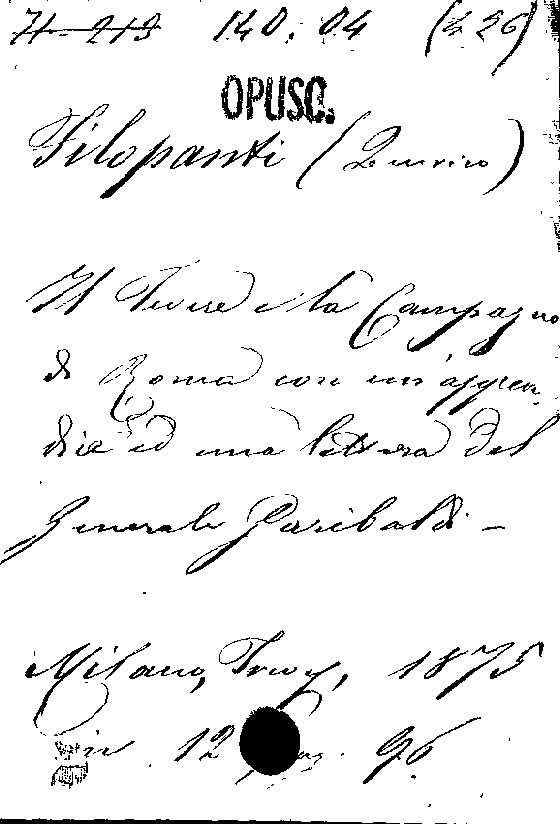 71-213 140. 04 (426)
OPUSC.
Filopanti (Quirico)
Il Tevere e la Campagna
di Roma con un'appen-
dice ed una lettera del
Generale Garibaldi -
Milano, Trev., 1875
in 12 pag. 96